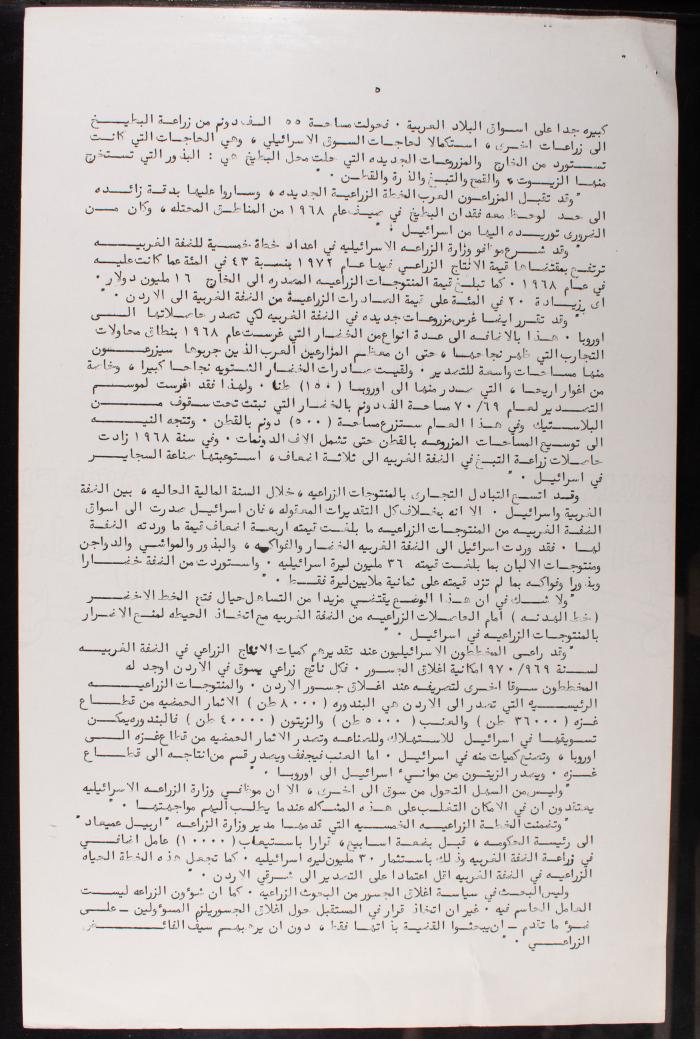 ٥
كبيره جدا على اسواق البلاد العربية . فحولت مساحة ٥٥ الف دونم من زراعة البطيخ
الى زراعات اخرى ، استكمالا لحاجات السوق الاسرائيلي ، وهي الحاجات التي كانت
تستورد من الخارج والمزروعات الجديده التي حلت محل البطيخ هي : البذور التي تستخرج
منها الزيوت ، والقمح والتبغ والذرة والقطن . "
"وقد تقبل المزارعون العرب الخطة الزراعية الجديده ، وساروا عليها بدقة زائده
الى حد لوحظ معه فقدان البطيخ في صيف عام ١٩٦٨ من المناطق المحتله ، وكان من
الضرورى توريده اليها من اسرائيل . "
"وقد شرع موظفو وزارة الزراعه الاسرائيليه في اعداد خطة خمسية للضفة الغربيه
ترتفع بمقتضاها قيمة الانتاج الزراعي فيها عام ١٩٧٢ بنسبة ٤٣ في المئة عما كانت عليه
في عام ١٩٦٨ . كما تبلغ قيمة المنتوجات الزراعيه المصدره الى الخارج ١٦ مليون دولار .
اى زيادة ٢٠ في المئة على قيمة الصادرات الزراعية من الضفة الغربية الى الاردن . "
"وقد تقرر ايضا غرس مزروعات جديده في الضفة الغربيه لكي تصدر حاصلاتها الى
اوروبا . هذا بالاضافه الى عدة انواع من الخضار التي غرست عام ١٩٦٨ بنطاق محاولات
التجارب التي ظهر نجاحها ، حتى ان معظم المزارعين العرب الذين جربوها سيزرعون
منها مساحات واسعة للتصدير . ولقيت صادرات الخضار الشتويه نجاحا كبيرا ، وخاصة
من اغوار اريحا ، التي صدر منها الى اوروبا (١٥٠) طنا . ولهذا فقد افرست لموسم
التصدير لعام ٧٠/٦٩ مساحة الف دونم بالخضار التي نبتت تحت سقوف من
البلاستيك وفي هذا العام ستزرع مساحة (٥٠٠) دونم بالقطن . وتتجه النيه
الى توسيع المساحات المزروعه بالقطن حتى تشمل الاف الدونمات . وفي سنة ١٩٦٨ زادت
حاصلات زراعة التبغ في الضفة الغربيه الى ثلاثة اضعاف ، استوعبتها صناعة السجاير
في اسرائيل . "
وقد اتسع التبادل التجارى بالمنتوجات الزراعيه ، خلال السنة المالية الحاليه ، بين الضفة
الغربية واسرائيل . الا انه بخلاف كل التقديرات المعقوله ، فان اسرائيل صدرت الى اسواق
الضفة الغربيه من المنتوجات الزراعيه ما بلغت قيمته اربعة اضعاف قيمة ما وردته الضفة
لها . فقد وردت اسرائيل الى الضفة الغربيه الخضار والفواكه ، والبذور والمواشي والدواجن
ومنتوجات الالبان بما بلغت قيمته ٣٦ مليون ليرة اسرائيليه . واستوردت من الضفة خضارا
وبذورا وفواكه بما لم تزد قيمته على ثمانية ملايين ليرة فقط . "
"ولا شك في ان هذا الوضع يقتضي مزيدا من التساهل حيال فتح الخط الاخضر
(خط الهدنه) امام الحاصلات الزراعيه من الضفة الغربيه مع اتخاذ الحيطه لمنع الاضرار
بالمنتوجات الزراعيه في اسرائيل . "
"وقد راعى المخططون الاسرائيليون عند تقديرهم كميات الانتاج الزراعي في الضفة الغربيه
لسنة ٩٧٠/٩٦٩ امكانية اغلاق الجسور . فكل ناتج زراعي يسوق في الاردن اوجد له
المخططون سوقا اخرى لتصريفه عند اغلاق جسور الاردن . والمنتوجات الزراعيه
الرئيسيه التي تصدر الى الاردن هي البندوره (٨٠٠٠ طن) الاثمار الحمضيه من قطاع
غزه (٣٦٠٠٠ طن) والعنب (٥٠٠٠ طن) والزيتون (٤٠٠٠٠ طن) فالبندوره يمكن
تسويقها في اسرائيل للاستهلاك وللصناعه وتصدر الاثمار الحمضيه من قطاع غزه الى
اوروبا ، وتصنع كميات منه في اسرائيل . اما العنب فيجفف ويصدر قسم من انتاجه الى قطاع
غزه . ويصدر الزيتون من موانيء اسرائيل الى اوروبا . "
"وليس من السهل التحول من سوق الى اخرى ، الا ان موظفي وزارة الزراعه الاسرائيليه
يعتقدون ان في الامكان التغلب على هذه المشكله عندما يطلب اليهم مواجهتها . "
"وتضمنت الخطة الزراعيه الخمسيه التي قدمها مدير وزارة الزراعه "اربيل عميعاد"
الى رئيسة الحكومه ، قبل بضعة اسابيع ، قرارا باستيعاب (١٠٠٠٠) عامل اضافي
في زراعة الضفة الغربيه وذلك باستثمار ٣٠ مليون ليره اسرائيليه . كما تجعل هذه الخطة الحياة
الزراعيه في الضفة الغربيه اقل اعتمادا على التصدير الى شرقي الاردن . "
وليس البحث في سياسة اغلاق الجسور من البحوث الزراعيه . كما ان شؤون الزراعه ليست
العامل الحاسم فيه . غير ان اتخاذ قرار في المستقبل حول اغلاق الجسور يلزم المسؤولين ــ على
ضوء ما تقدم ــ ان يبحثوا القضية بذاتها فقط ، دون ان يرهبهم سيف الفائض
الزراعي . "